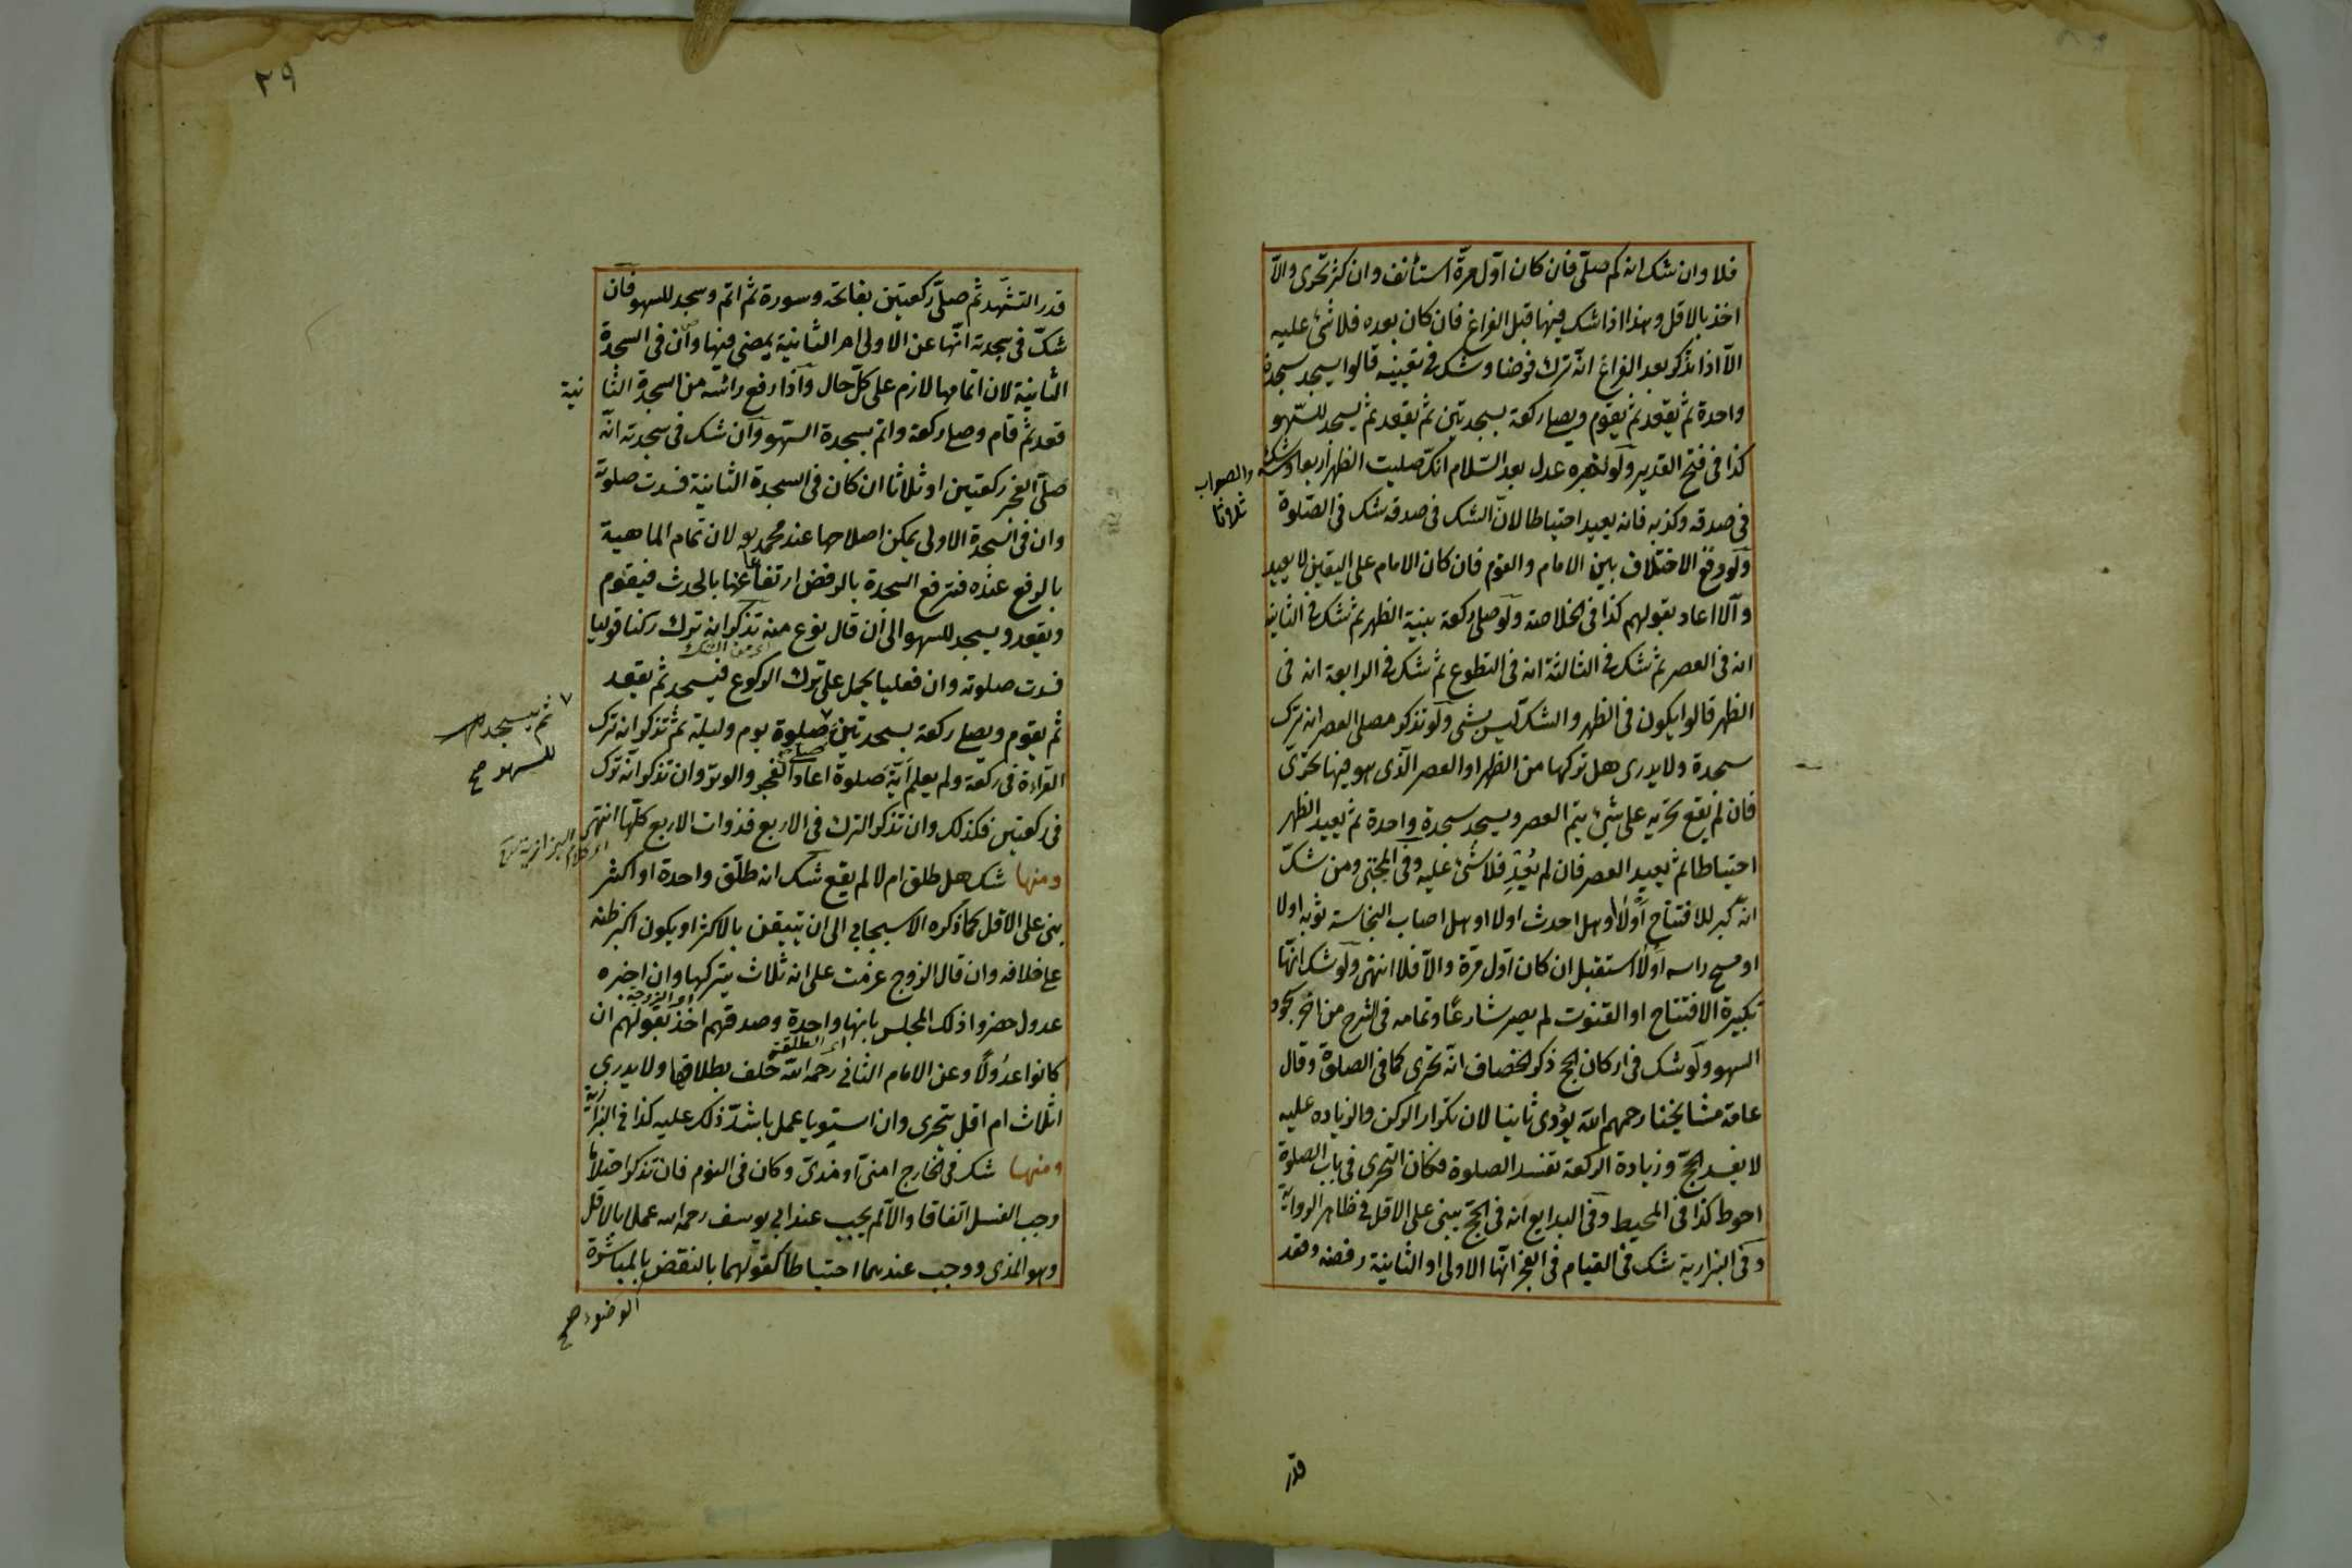 فلا وان شك انه كم صلى فان كان اول مرة استأنف وان كثر تحرى والا
اخذ بالاقل وهذا اذا شك فيها قبل الفراغ فان كان بعده فلا شئ عليه
الا اذا تذكر بعد الفراغ انه ترك فرضا وشك فى تعيينه قالوا يسجد سجدة
واحدة ثم يقعد ثم يقوم ويصلى ركعة بسجدتين ثم يقعد ثم يسجد للسهو
كذا فى فتح القدير ولو اخبره عدل بعد السلام انك صليت الظهر اربعا وشك
والصواب ثلاثا
فى صدقه وكذبه فانه يعيد احتياطا لان الشك فى صدقه شك فى الصلوة
ولو وقع الاختلاف بين الامام والقوم فان كان الامام على اليقين لا يعيد
والا اعاد بقولهم كذا فى الخلاصة ولو صلى ركعة بنية الظهر ثم شك فى الثانية
انه فى العصر ثم شك فى الثالثة انه فى التطوع ثم شك فى الرابعة انه فى
الظهر قالوا يكون فى الظهر والشك ليس بشئ ولو تذكر مصلى العصر انه ترك
سجدة ولا يدرى هل تركها من الظهر او العصر الذى هو فيها تحرى
فان لم يقع تحريه على شئ يتم العصر ويسجد سجدة واحدة ثم يعيد الظهر
احتياطا ثم يعيد العصر فان لم يعد فلا شئ عليه وفى المجتبى ومن شك
انه كبر للافتتاح اولا او هل احدث اولا او هل اصاب النجاسة ثوبه اولا
او مسح راسه اولا استقبل ان كان اول مرة والا فلا انتهى ولو شك انها
تكبيرة الافتتاح او القنوت لم يصر شارعا وتمامه فى الشرح من اخر سجود
السهو ولو شك فى اركان الحج ذكر الخصاف انه تحرى كما فى الصلوة وقال
عامة مشايخنا رحمهم الله يؤدى ثانيا لان تكرار الركن والزياده عليه
لا يفسد الحج وزيادة الركعة تفسد الصلوة فكان التحرى فى باب الصلوة
احوط كذا فى المحيط وفى البدايع انه فى الحج يبنى على الاقل فى ظاهر الرواية
وفى البزازية شك فى القيام فى الفجر انها الاولى او الثانية رفضه وقعد
قدر
٢٩
قدر التشهد ثم صلى ركعتين بفاتحة وسورة ثم اتم وسجد للسهو فان
شك فى سجدته انها عن الاولى ام الثانية يمضى فيها وان فى السجدة
الثانية لان اتمامها لازم على كل حال واذا رفع رائسه من السجدة الثا نية
قعد ثم قام وصلى ركعة واتم بسجدة السهو وان شك فى سجدته انه
صلى الفجر ركعتين او ثلاثا ان كان فى السجدة الثانية فسدت صلوته
وان فى السجدة الاولى يمكن اصلاحها عند محمد لان تمام الماهية
بالرفع عنده فترفع السجدة بالرفض ارتفاعها بالحدث فيقوم
ويقعد ويسجد للسهو الى ان قال نوع منه تذكر انه ترك ركنا قوليا
اى من الشك
فسدت صلوته وان فعليا يحمل على ترك الركوع فيسجد ثم يقعد
ثم يقوم ويصلى ركعة بسجدتين صلوة يوم وليلة ثم تذكر انه ترك
ثم يسجد
للسهو صح
صلى
القراءة فى ركعة ولم يعلم اية صلوة اعاد الفجر والوتر وان تذكر انه ترك
فى ركعتين فكذلك وان تذكر الترك فى الاربع فذوات الاربع كلها انتهى
اى كلام البزازية
ومنها شك هل طلق ام لا لم يقع شك انه طلق واحدة او اكثر
بنى على الاقل كما ذكره الاسبيجابى الى ان تيقن بالاكثر او يكون اكبر ظنه
على خلافه وان قال الزوج عزمت على انه ثلاث يتركها وان اخبره
عدول حضروا ذلك المجلس بانها واحدة وصدقهم اخذ بقولهم ان
كانوا عدولا وعن الامام الثانى رحمه الله حلف بطلاقها ولا يدرى
اثلاث ام اقل يتحرى وان استويا عمل باشد ذلك عليه كذا فى البزازية
ومنها شك فى الخارج امنى او مذى وكان فى النوم فان تذكر احتلاما
وجب الغسل اتفاقا والا لم يجب عند ابى يوسف رحمه الله عملا بالاقل
وهو المذى ووجب عندهما احتياطا كقولهما بالنقض بالمباشرة
الوضوء صح